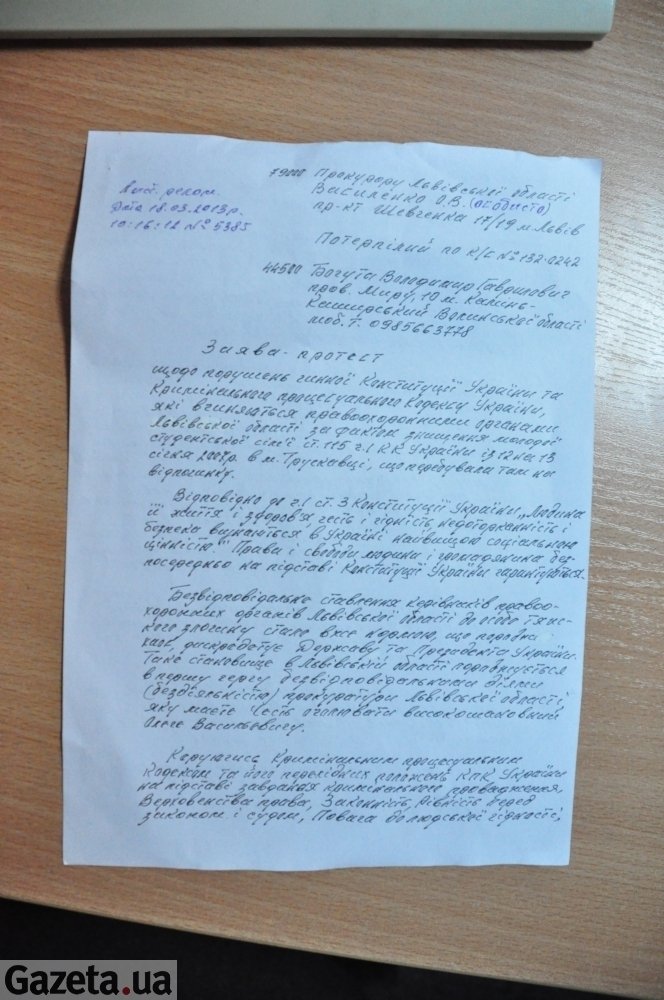 79000 Прокурору Львівської області
Василенко О.В. (особисто)
пр-кт Шевченка 17/19 м. Львів
Лист. реком.
Дата 18.03.2013р.
10:16:12 № 5385
Потерпілий по К/С № 132-0242
44500 Богута Володимир Гаврилович
пров. Миру, 10 м. Камінь-
Каширський Волинської області
моб. т. 0985663778
Заява - протест
щодо порушень чинної Конституції України та
Кримінального процесуального Кодексу України,
які вчиняються правоохоронними органами
Львівської області за фактом знищення молодої
студентської сім'ї ст. 115 ч. 1 КК України із 12 на 13
січня 2007р. в м. Трускавці, що перебували там на
відпочинку.
Відповідно до ч. 1 ст. 3 Конституції України „Людина
її життя і здоров'я честь і гідність недоторканність і
безпека визнаються в Україні найвищою соціальною
цінністю" Права і свободи людини і громадянина без-
посередньо на підставі Конституції України гарантуються.
Безвідповідальне ставлення керівників правоо-
хоронних органів Львівської області до особо тяж-
кого злочину стало вже нормою, що
дискредитує Державу та Президента України.
Таке становище в Львівській області
в першу чергу безвідповідальними діями
(бездіяльністю) прокуратури Львівської області,
яку маєте честь очолювати високошановний
Олеге Васильевичу.
Керуючись Кримінальним процесуальним
Кодексом та його перехідних положень КПК України
на підставі завдання кримінального провадження,
Верховенства права, Законність, Рівність перед
законом і судом, Повага до людської гідності,
Gazeta.ua